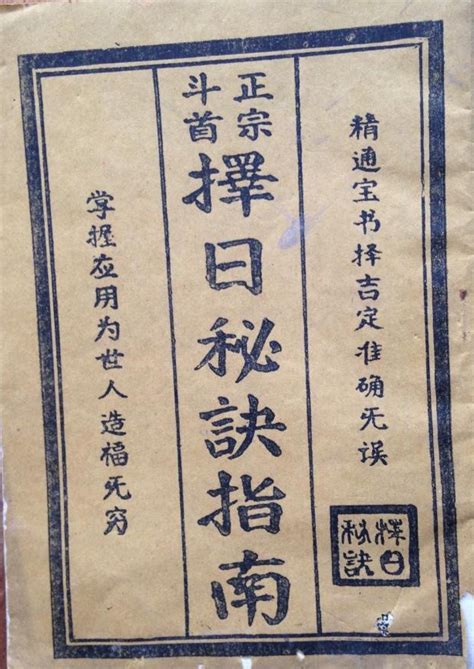 精通宝书择吉定准确无误
正宗
斗首
擇日秘訣指南
掌握应用为世人造福无穷
择日
秘訣